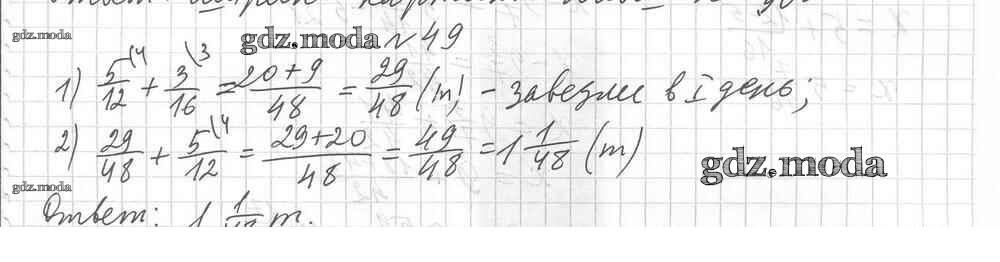 gdz.moda gdz.moda № 49
1) 5/12 \4 + 3/16 \3 = 20+9/48 = 29/48 (т) - завезли в I день;
2) 29/48 + 5/12 \4 = 29+20/48 = 49/48 = 1 1/48 (т)
gdz.moda
gdz.moda
Ответ: 1 1/48 т.